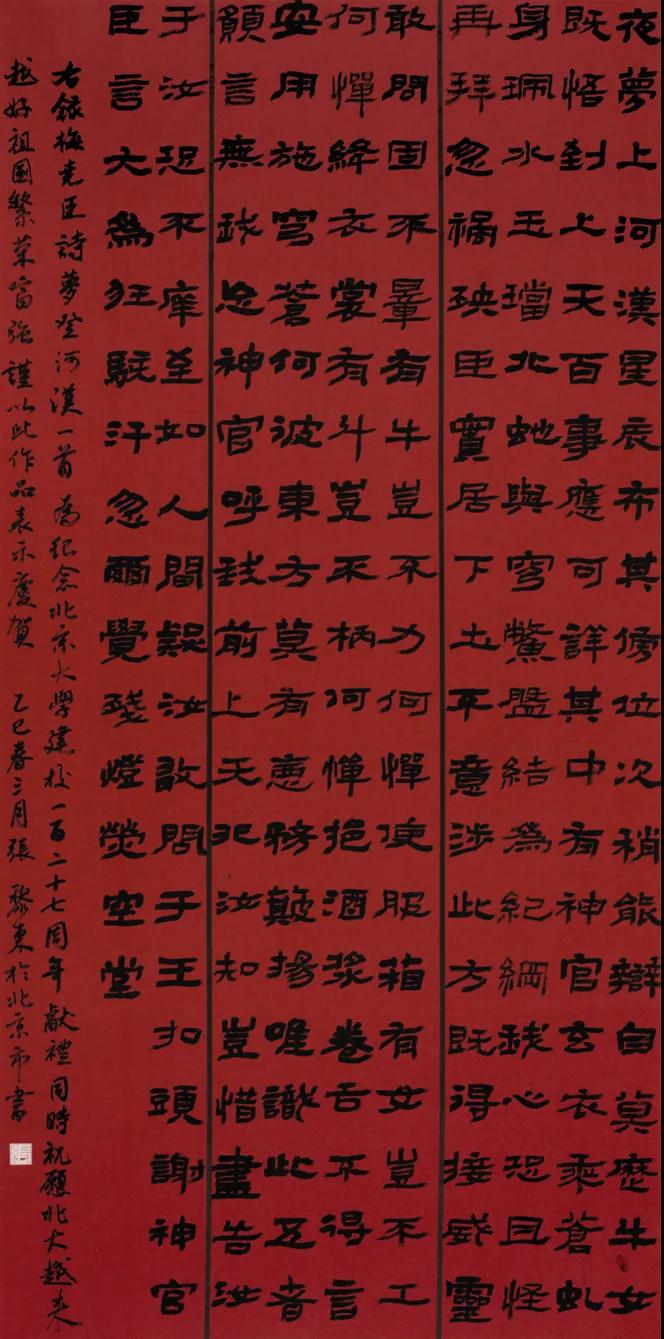 夜夢上河漢星辰布其傍位次稍能辯自莫歷牛女
既悟到上天百事應可詳其中有神官玄衣乘蒼虬
身珮水玉璫北虵與穹鱉盤結為紀綱我心恐且怪
再拜忽禍殃臣實居下土不意涉此方既得接威靈
敢問固不量有牛豈不力何憚使服箱有女豈不工
何憚縫衣裳有斗豈不柄何憚挹酒漿卷舌不得言
安用施穹蒼何波東方莫有惡務顛揚唯識此五音
願言無我忘神官呼我前上天非汝知豈惜盡告汝
于汝恐不庠至如人間疑汝敢問于王扣頭謝神官
臣言大為狂駭汗忽爾覺殘燈熒空堂
右錄梅堯臣詩夢登河漢一首為紀念北京大學建校一百二十七周年獻禮同時祝願北大越來
越好祖國繁榮富強謹以此作品表示慶賀 乙巳春三月張黎東於北京市書